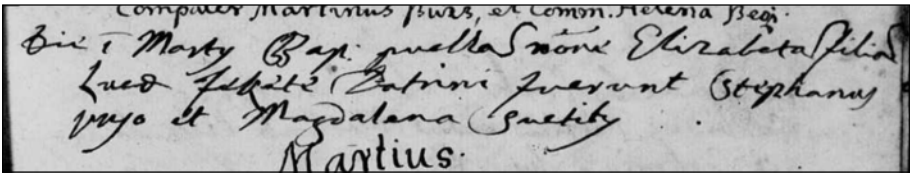 Compater Martinus Burs, et Comm. Helena Begi.
Die 1 Marty Bap. puella nõie Elizabeta filia
Luca Patrini fuerunt Stephanus
et Magdalena
Martius.